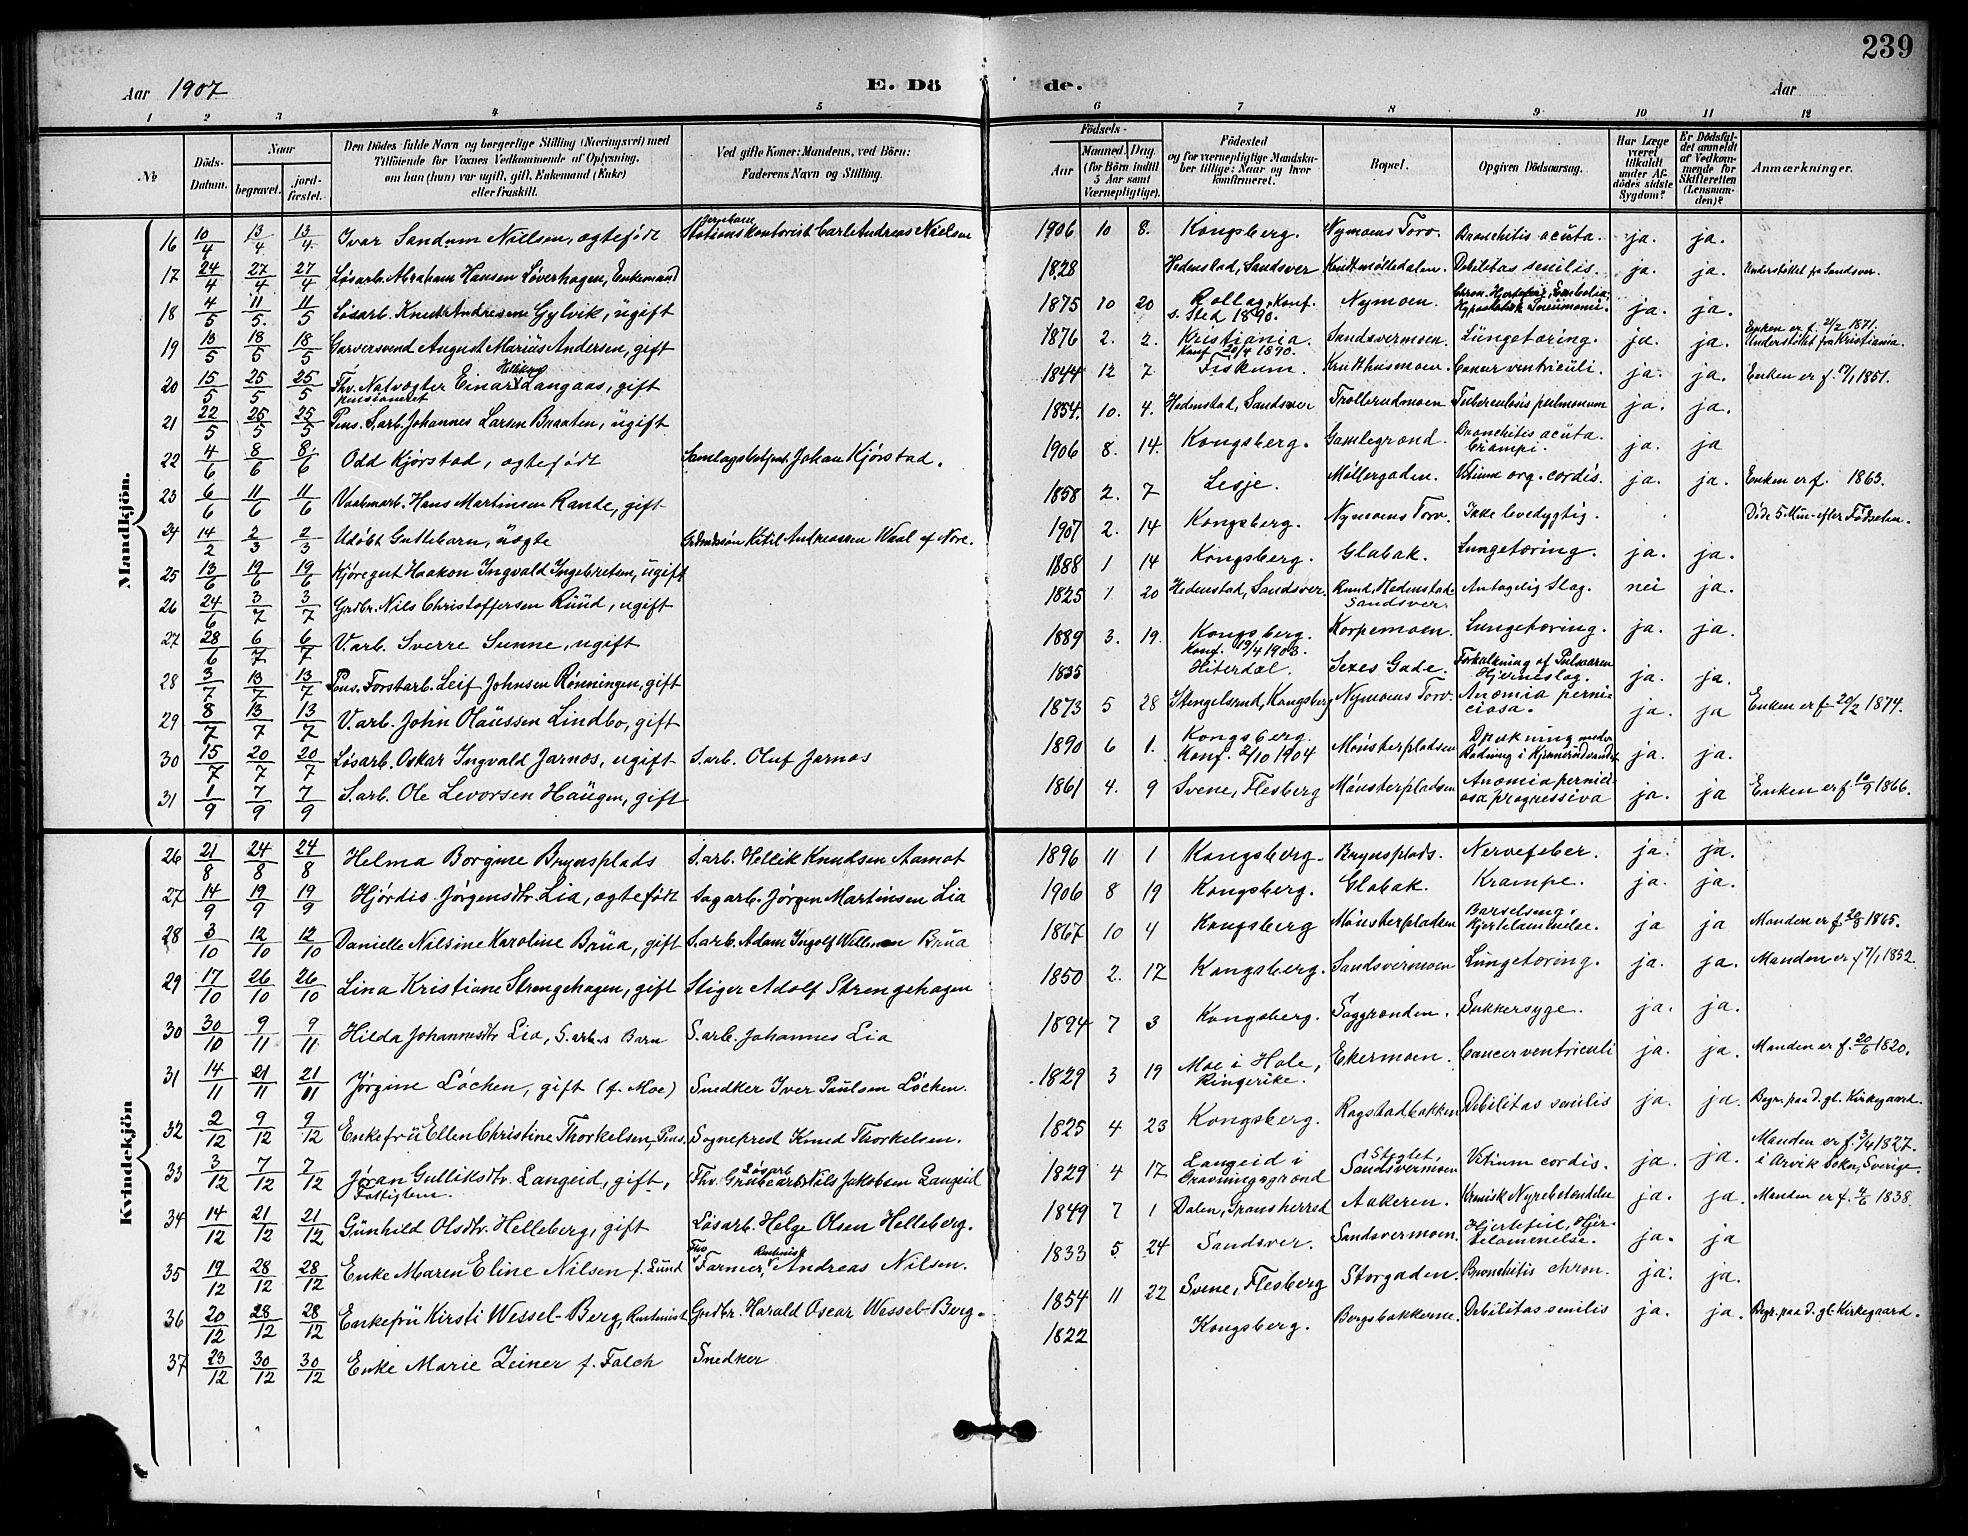 239
Aar 1907 E. Dö de. Aar
1 2 3 4 5 6 7 8 9 10 11 12
№
Döds-Datum.
Naar
begravet.
jord-fæstet.
Den Dödes fulde Navn og borgerlige Stilling (Næringsvei) med
Tilföiende for Voxnes Vedkommende af Oplysning,
om han (hun) var ugift, gift, Enkemand (Enke)
eller fraskilt.
Ved gifte Koner: Mandens, ved Börn:
Faderens Navn og Stilling.
Födsels-
Aar
Maaned. Dag.
(for Börn indtil
5 Aar samt
Værnepligtige).
Födested
og for værnepligtige Mandska-
ber tillige: Naar og hvor
konfirmeret.
Bopæl.
Opgiven Dödsaarsag.
Har Læge
været
tilkaldt
under Af-
dödes sidste
Sygdom?
Er Dödsfal-
det anmeldt
af Vedkom-
mende for
Skifteretten
(Lensman-
den)?
Anmærkninger.
Mandkjön.
16 10/4 13/4 13/4 Ivar Sandum Nielsen, ægtefødt Jernbane Stationskontorist Carl Andreas Nielsen 1906 10 8. Kongsberg. Nymoens Torv. Bronchitis acuta. ja. ja.
17 24/4 27/4 27/4 Løsarb. Abraham Hansen Løverhagen, Enkemand 1828 Hedenstad, Sandsver Debilitas senilis. ja. ja. Understøttet fra Sandsver.
18 4/5 11/5. 11/5 Løsarb. Knut Andresen Gylvik, ugift 1875 10 20 Rollag, Konf. s. Sted 1890. Nymoen. Chron. Hjertefeil, Embolia, Hypostatisk Pneumoni. ja. ja.
19 13/5 18/5 18/5 Garversvend August Marius Andersen, gift 1876 2. 2. Kristiania. Konf. 20/4 1890. Sandsvermoen. Lungetæring. ja. ja. Enken er f. 21/2 1871. Understøttet fra Kristiania.
20 15/5 25/5 25/5 Fhv. Natvægter Einar Langaas, gift pensioneret 1844 12 7. Fiskum. Krutthusmoen. Cancer ventriculi. ja. ja. Enken er f. 1851.
21 22/5 25/5 25/5 Pens. S.arb. Johannes Larsen Braaten, ugift 1854. 10. 4. Hedenstad, Sandsver Trollerudmoen Tuberculosis pulmonum ja. ja.
22 4/6 8/6 8/6 Odd Kjørstad, ægtefødt Samlagsbetjent Johan Kjørstad. 1906 8. 14. Kongsberg. Gamlegrænd. Bronchitis acuta. Crampi. ja. ja
23 6/6 11/6 11/6 Vaabenarb. Hans Martinsen Rande, gift 1858 2. 7 Lesje. Møllergaden. Vitium org. cordis. ja. ja. Enken er f. 1863.
24 14/2 2/3 2/3 Udøbt Guttebarn, uægte Kitil Andreassen Waal af Nore. 1907 2. 14 Kongsberg. Nymoens Torv. Ikke levedygtig. Døde 5 Min. efter Fødselen.
25 13/6 19/6 19/6 Kjøregut Haakon Ingvald Ingebretsen, ugift 1888 1 14 Kongsberg. Glabak. Lungetæring. ja. ja.
26 24/6 3/7 3/7 Grdbr. Nils Christoffersen Ruud, ugift 1825 1 20 Hedenstad, Sandsver. Ruud, Hedenstad, Sandsver. Antagelig Slag. nei ja.
27 28/6 6/7 6/7 V.arb. Sverre Sunne, ugift 1889 3. 19. Kongsberg. Konf. 19/4 1903. Korpemoen. Lungetæring. ja. ja.
28 3/7 13/7 13/7 Pens. Forstarb. Leif Johnsen Rønningen, gift 1835 Hiterdal. Sexes Gade. Forkalkning af Pulsaaren Hjerneslag. ja. ja.
29 8/7 13/7 13/7 V.arb. John Olaussen Lindbo, gift 1873 5 28 Stengelsrud, Kongsberg Nymoens Torv. Anæmia perniciosa. ja. ja Enken er f. 20/2 1874.
30 15/7 20/7 20/7 Løsarb. Oskar Ingvald Jarnæs, ugift S.arb. Oluf Jarnæs 1890 6 1. Kongsberg. Konf. 2/10 1904 Mønsterpladsen Drukning under Badning i Kjennerudvandet ja. ja.
31 1/9 7/9 7/9 S.arb. Ole Levorsen Haugen, gift 1861 4. 9 Svene, Flesberg Mønsterpladsen Anæmia perniciosa progressiva ja. ja Enken er f. 10/9 1866.
Kvindekjön
26 21/8 24/8 24/8 Helma Borgine Brynsplads S.arb. Hellik Knudsen Aamot 1896 11 1 Kongsberg. Brynsplads. Nervefeber. ja. ja.
27 14/9 19/9 19/9 Hjørdis Jørgensdtr. Lia, ægtefødt Sagarb. Jørgen Martinsen Lia 1906 8 19 Kongsberg. Glabak. Krampe. ja. ja.
28 3/10 12/10 12/10 Danielle Nilsine Karoline Brua, gift S.arb. Adam Ingolf Willman Brua 1867 10 4 Kongsberg Mønsterpladen Barselseng, Hjertelammelse. ja ja Manden er f. 1865.
29 17/10 26/10 26/10 Lina Kristiane Strengehagen, gift Stiger Adolf Strengehagen 1850 2. 17 Kongsberg. Sandsvermoen Lungetæring. ja. ja. Manden er f. 1852.
30 30/10 9/11 9/11 Hilda Johannesdtr. Lia, S.arb.s Barn S.arb. Johannes Lia 1894 7 3 Kongsberg. Saggrænden. Sukkersyge. ja. ja.
31 14/11 21/11 21/11 Jørgine Løchen, gift (f. Moe) Snedker Iver Paulsen Løchen. 1829 3 19 Moe i Hole, Ringerike. Ekermoen. Cancer ventriculi ja. ja. Manden er f. 20/6 1820.
32 2/12 9/12 9/12 Enkefru Ellen Christine Thorkelsen, Pens. Sogneprest Knud Thorkelsen. 1825 4 23 Kongsberg. Ragstadbakken Debilitas senilis ja. ja. Begr. paa d. gl. Kirkegaard.
33 3/12 7/12 7/12 Jøran Gulliksdtr. Langeid, gift, Fattiglem. Fhv. Grubearb. Løsarb Nils Jakobsen Langeid 1829 4 17 Langeid i Gravningsgrænd Slaglet, Sandsvermoen Vitium cordis. ja. ja. Manden er f. 3/4 1827. i Arvik Sokn, Sverige.
34 14/12 21/12 21/12 Gunhild Olsdtr. Helleberg, gift Løsarb. Helge Olsen Helleberg. 1849 7 1 Dalen, Gransherred Aakeren. Kronisk Nyrebetændelse ja. ja. Manden er f. 4/6 1838.
35 19/12 28/12 28/12 Enke Maren Eline Nilsen f. Lund Fhv. Farmer, Rentenist Andreas Nilsen. 1833 5 24 Sandsver. Sandsvermoen. Hjertefeil, Hjertelammelse. ja. ja
36 20/12 28/12 28/12 Enkefru Kirsti Wessel-Berg, Rentenist Grdbr. Harald Oscar Wessel-Berg. 1854 11 22 Svene, Flesberg Storgaden. Bronchitis chron. ja. ja.
37 23/12 30/12 30/12 Enke Marie Zeiner f. Falch Snedker 1822 Kongsberg. Bergsbakkerne. Debilitas senilis ja. ja. Begr. paa d. gl. Kirkegaard.